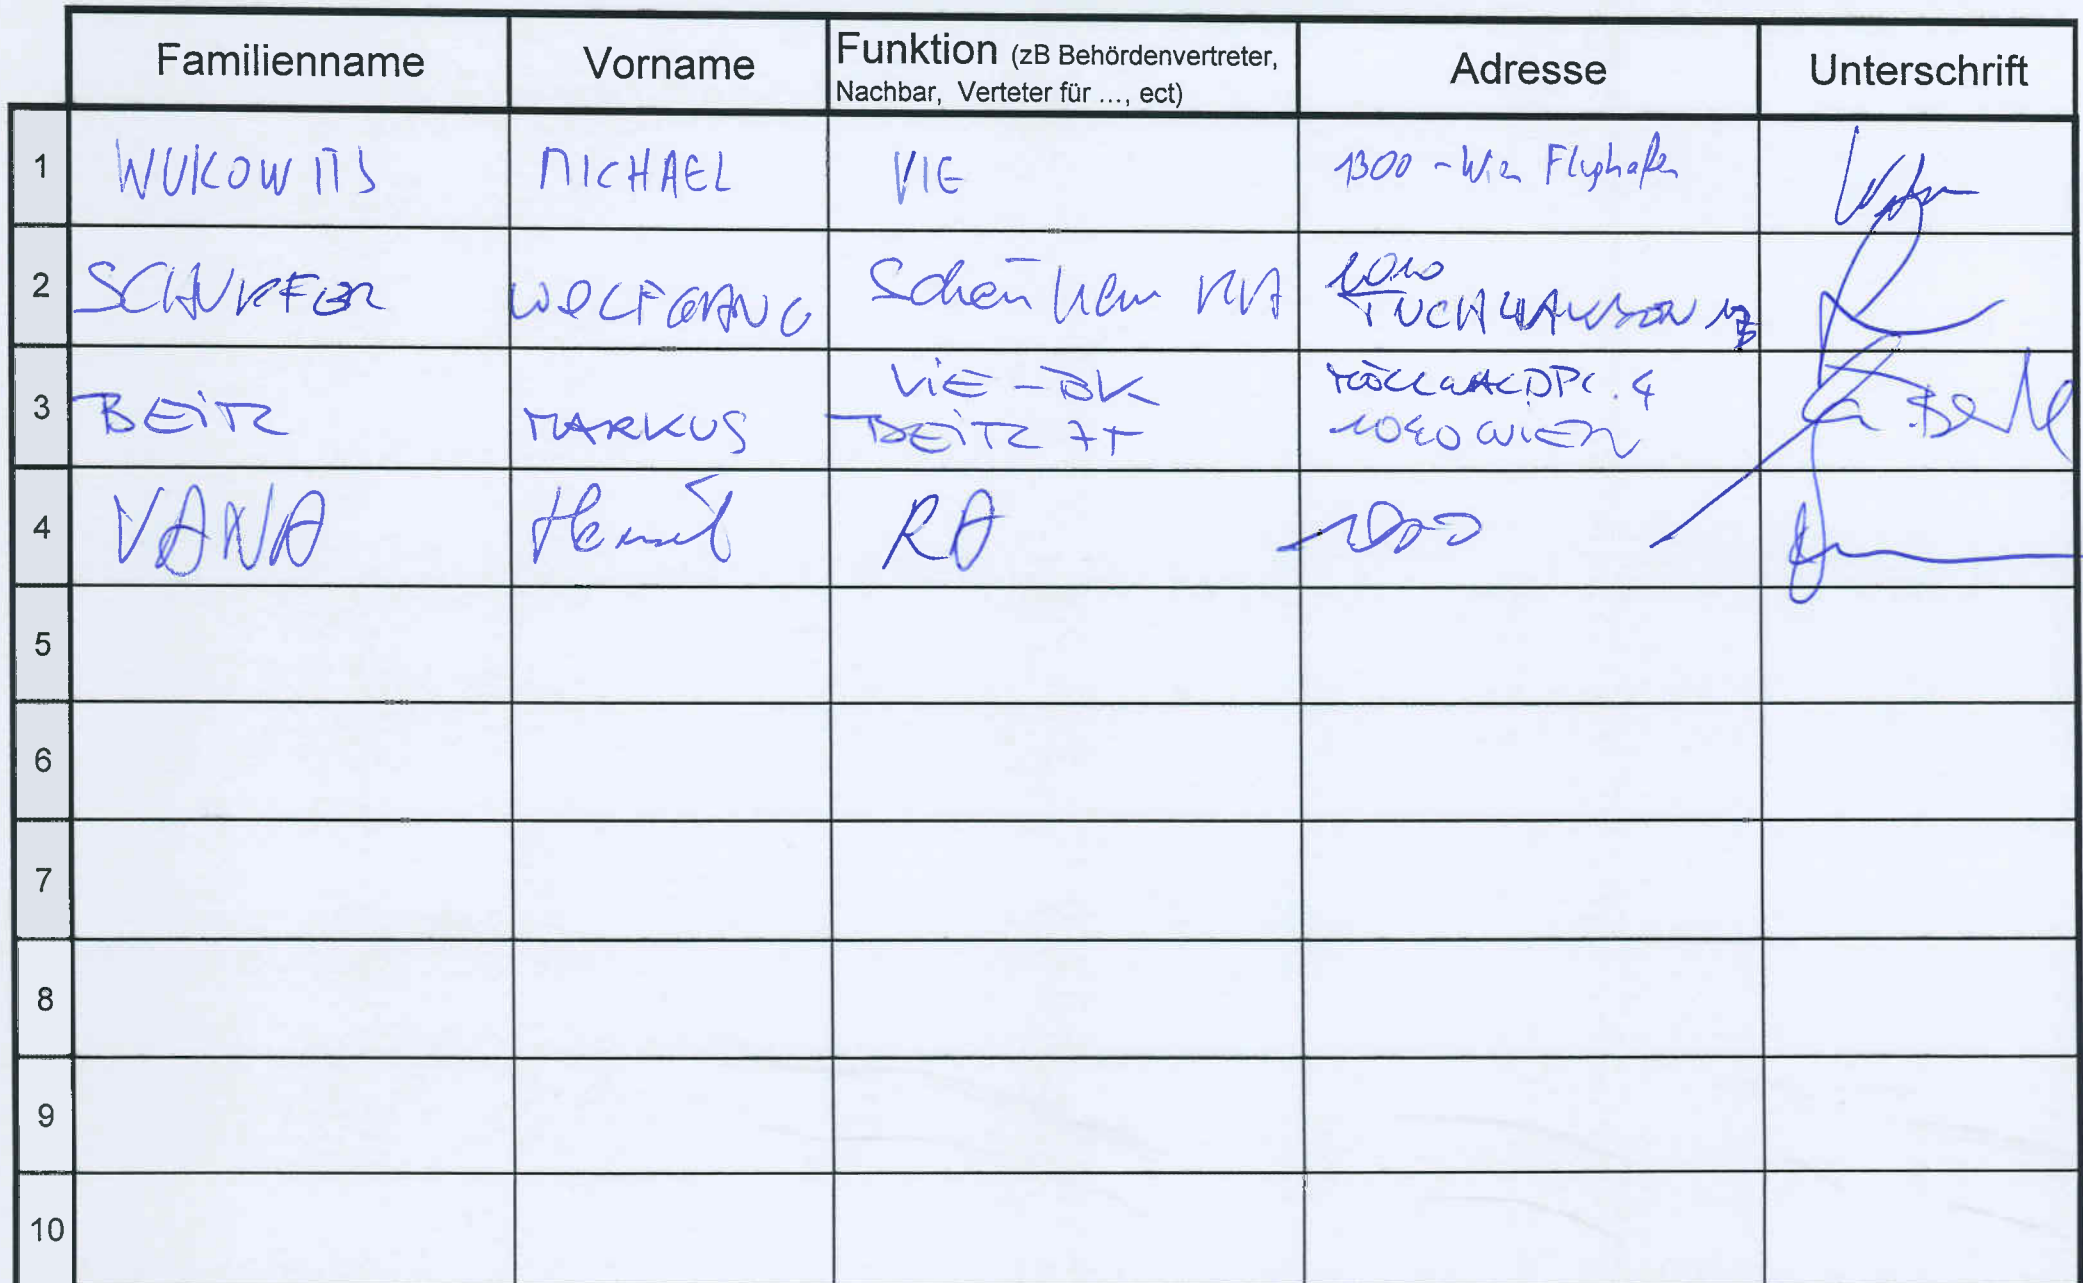 Familienname Vorname Funktion (zB Behördenvertreter, Nachbar, Verteter für ..., ect) Adresse Unterschrift
1 WUKOWITS MICHAEL VIE 1300 - Wien Flughafen
2 WOLFGANG Schönherr RA 1010 TUCHLAUBEN 17
3 BEITL MARKUS VIE - BK BEITL ZT MÖLLWALDPL. 4 1040 WIEN
4 VANA RA
5
6
7
8
9
10